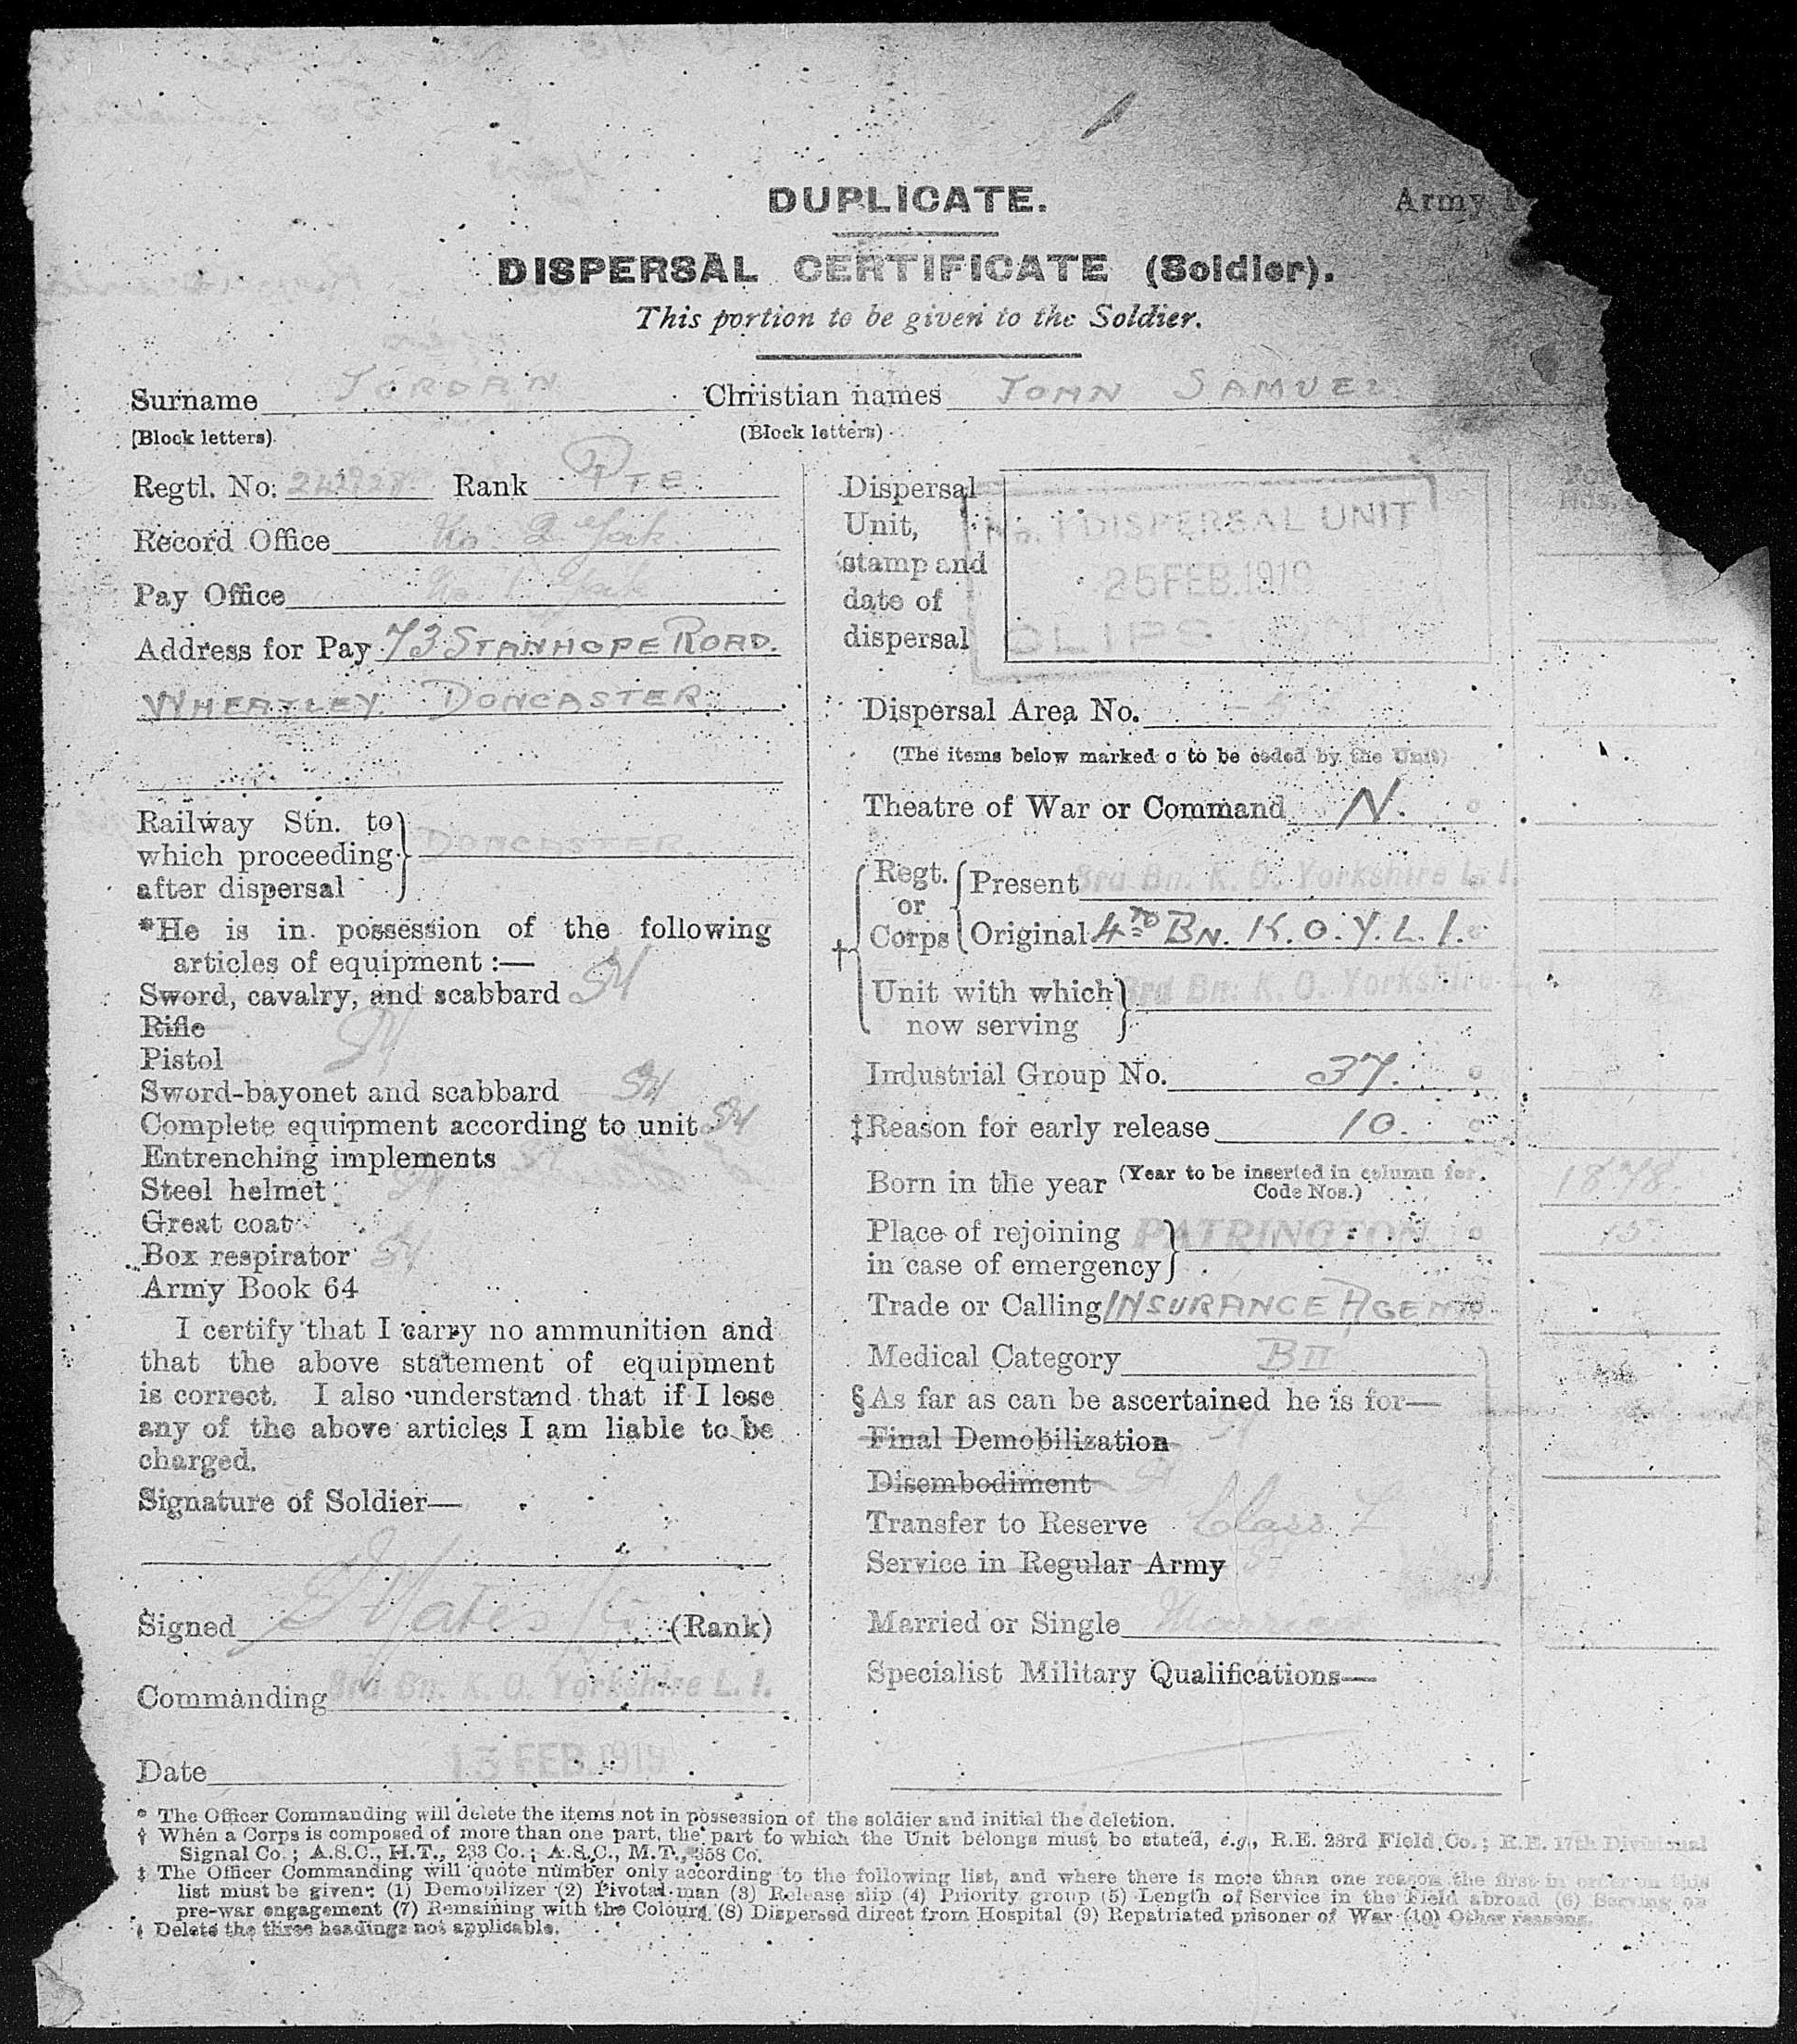 DUPLICATE.
Army
DISPERSAL CERTIFICATE (Soldier).
This portion to be given to the Soldier.
Surname JORDAN Christian names JOHN SAMUEL
(Block letters) (Block letters)
Regtl. No. Rank PTE
Record Office No. 2 York
Pay Office No. 1 York
Address for Pay 73 STANHOPE ROAD.
WHEATLEY DONCASTER
Railway Stn. to
which proceeding
after dispersal DONCASTER
*He is in possession of the following
articles of equipment :—
Sword, cavalry, and scabbard
Rifle
Pistol
Sword-bayonet and scabbard
Complete equipment according to unit
Entrenching implements
Steel helmet
Great coat
Box respirator
Army Book 64
I certify that I carry no ammunition and
that the above statement of equipment
is correct. I also understand that if I lose
any of the above articles I am liable to be
charged.
Signature of Soldier—
Signed (Rank)
Commanding 3rd Bn. K. O. Yorkshire L. I.
Date 13 FEB. 1919
Dispersal
Unit,
stamp and
date of
dispersal
No. 1 DISPERSAL UNIT
25 FEB. 1919
CLIPSTONE
Dispersal Area No.
(The items below marked o to be coded by the Unit)
Theatre of War or Command N. o
† Regt. or Corps
Present 3rd Bn. K. O. Yorkshire L. I.
Original 4TH BN. K.O.Y.L.I. o
Unit with which
now serving 3rd Bn. K. O. Yorkshire L.
Industrial Group No. 37. o
‡Reason for early release 10. o
Born in the year (Year to be inserted in column for Code Nos.) 1878.
Place of rejoining
in case of emergency PATRINGTON o
Trade or Calling INSURANCE AGENT o
Medical Category B II
§As far as can be ascertained he is for—
Final Demobilization
Disembodiment
Transfer to Reserve Class Z
Service in Regular Army
Married or Single Married
Specialist Military Qualifications—
* The Officer Commanding will delete the items not in possession of the soldier and initial the deletion.
† When a Corps is composed of more than one part, the part to which the Unit belongs must be stated, e.g., R.E. 23rd Field Co.; R.E. 17th Divisional
Signal Co.; A.S.C., H.T., 233 Co.; A.S.C., M.T., 358 Co.
‡ The Officer Commanding will quote number only according to the following list, and where there is more than one reason the first in order on this
list must be given: (1) Demobilizer (2) Pivotal man (3) Release slip (4) Priority group (5) Length of Service in the Field abroad (6) Serving on
pre-war engagement (7) Remaining with the Colours (8) Dispersed direct from Hospital (9) Repatriated prisoner of War (10) Other reasons.
Delete the three headings not applicable.